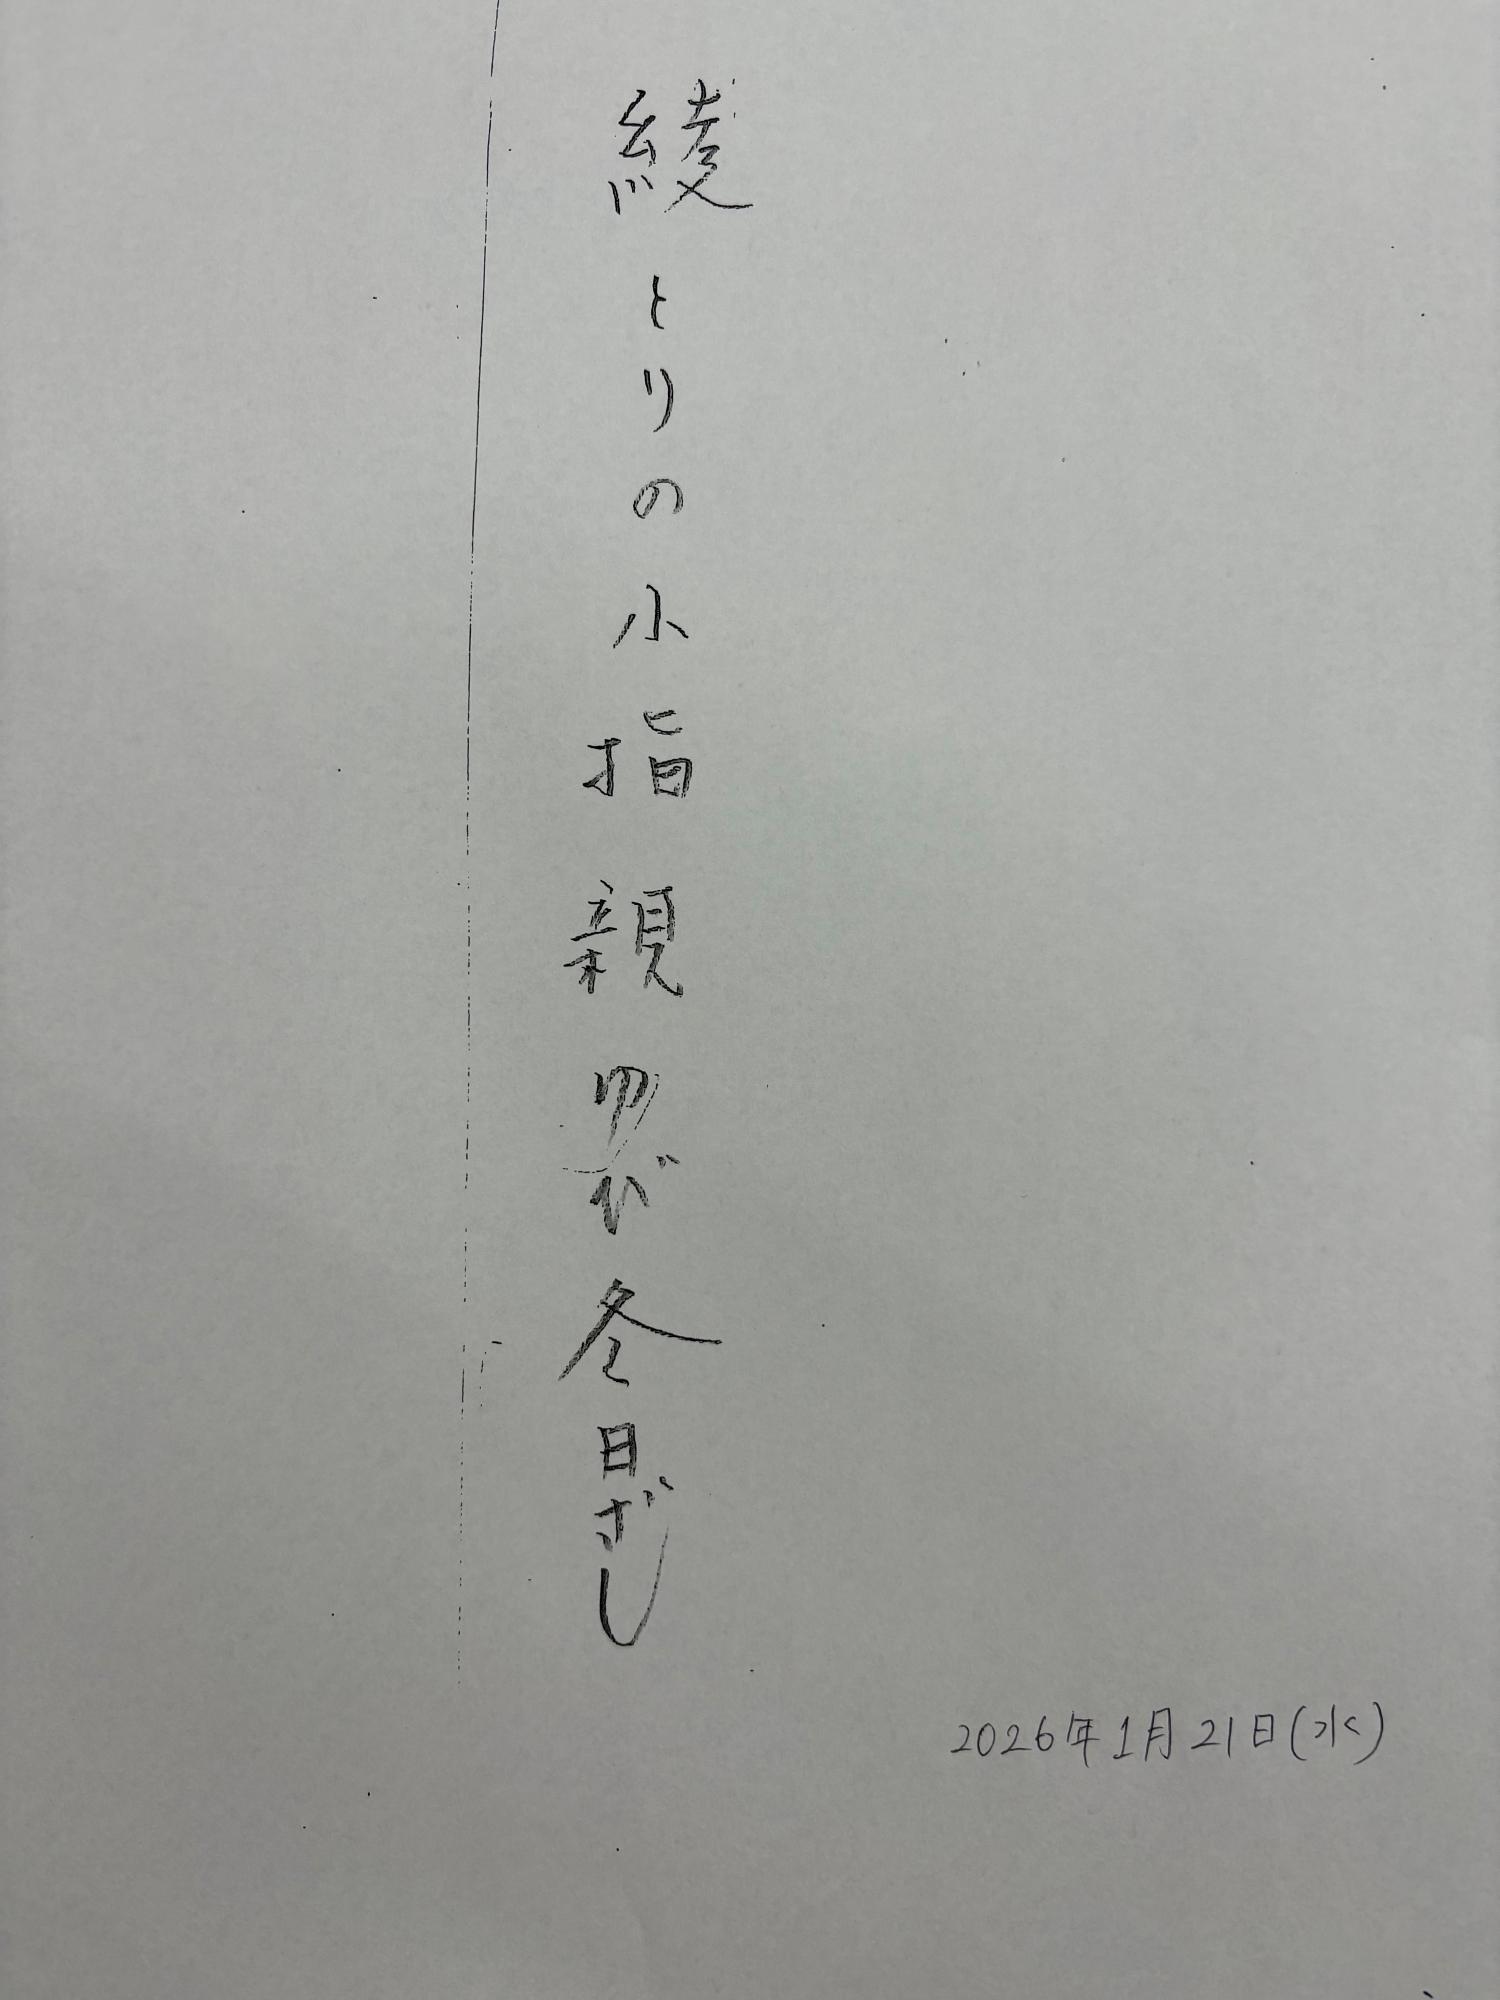 綾とりの小指親ゆび冬日ざし
2026年1月21日(水)